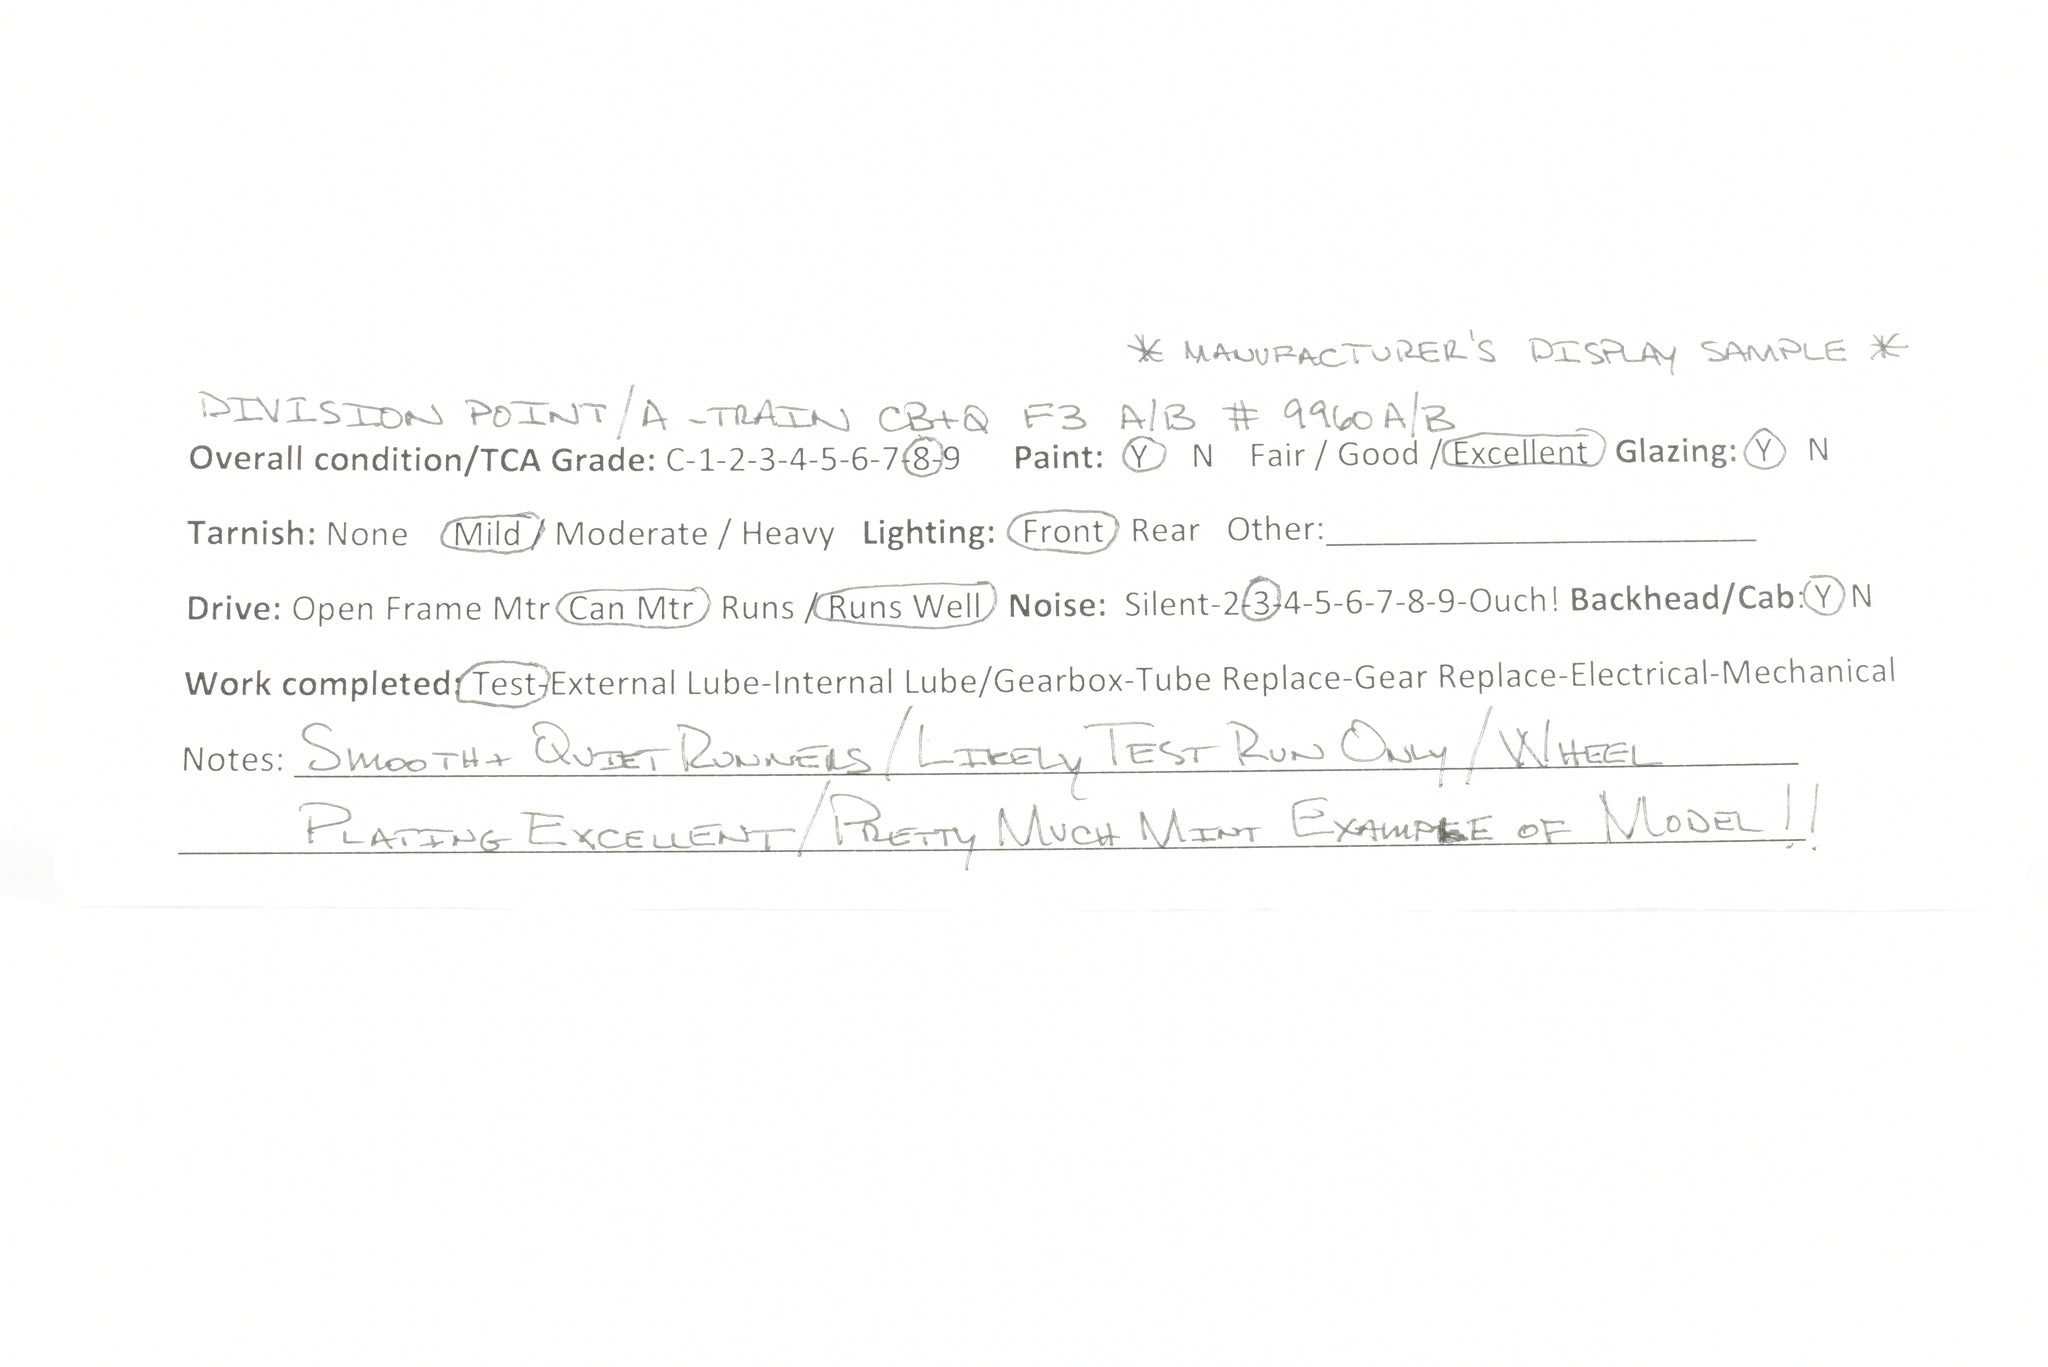 * MANUFACTURER'S DISPLAY SAMPLE *
DIVISION POINT/A-TRAIN CB+Q F3 A/B # 9960A/B
Overall condition/TCA Grade: C-1-2-3-4-5-6-7-8-9 Paint: Y N Fair / Good / Excellent Glazing: Y N
Tarnish: None Mild / Moderate / Heavy Lighting: Front Rear Other:
Drive: Open Frame Mtr Can Mtr Runs / Runs Well Noise: Silent-2-3-4-5-6-7-8-9-Ouch! Backhead/Cab: Y N
Work completed: Test-External Lube-Internal Lube/Gearbox-Tube Replace-Gear Replace-Electrical-Mechanical
Notes: SMOOTH + QUIET RUNNERS / LIKELY TEST RUN ONLY / WHEEL
PLATING EXCELLENT / PRETTY MUCH MINT EXAMPLE OF MODEL!!